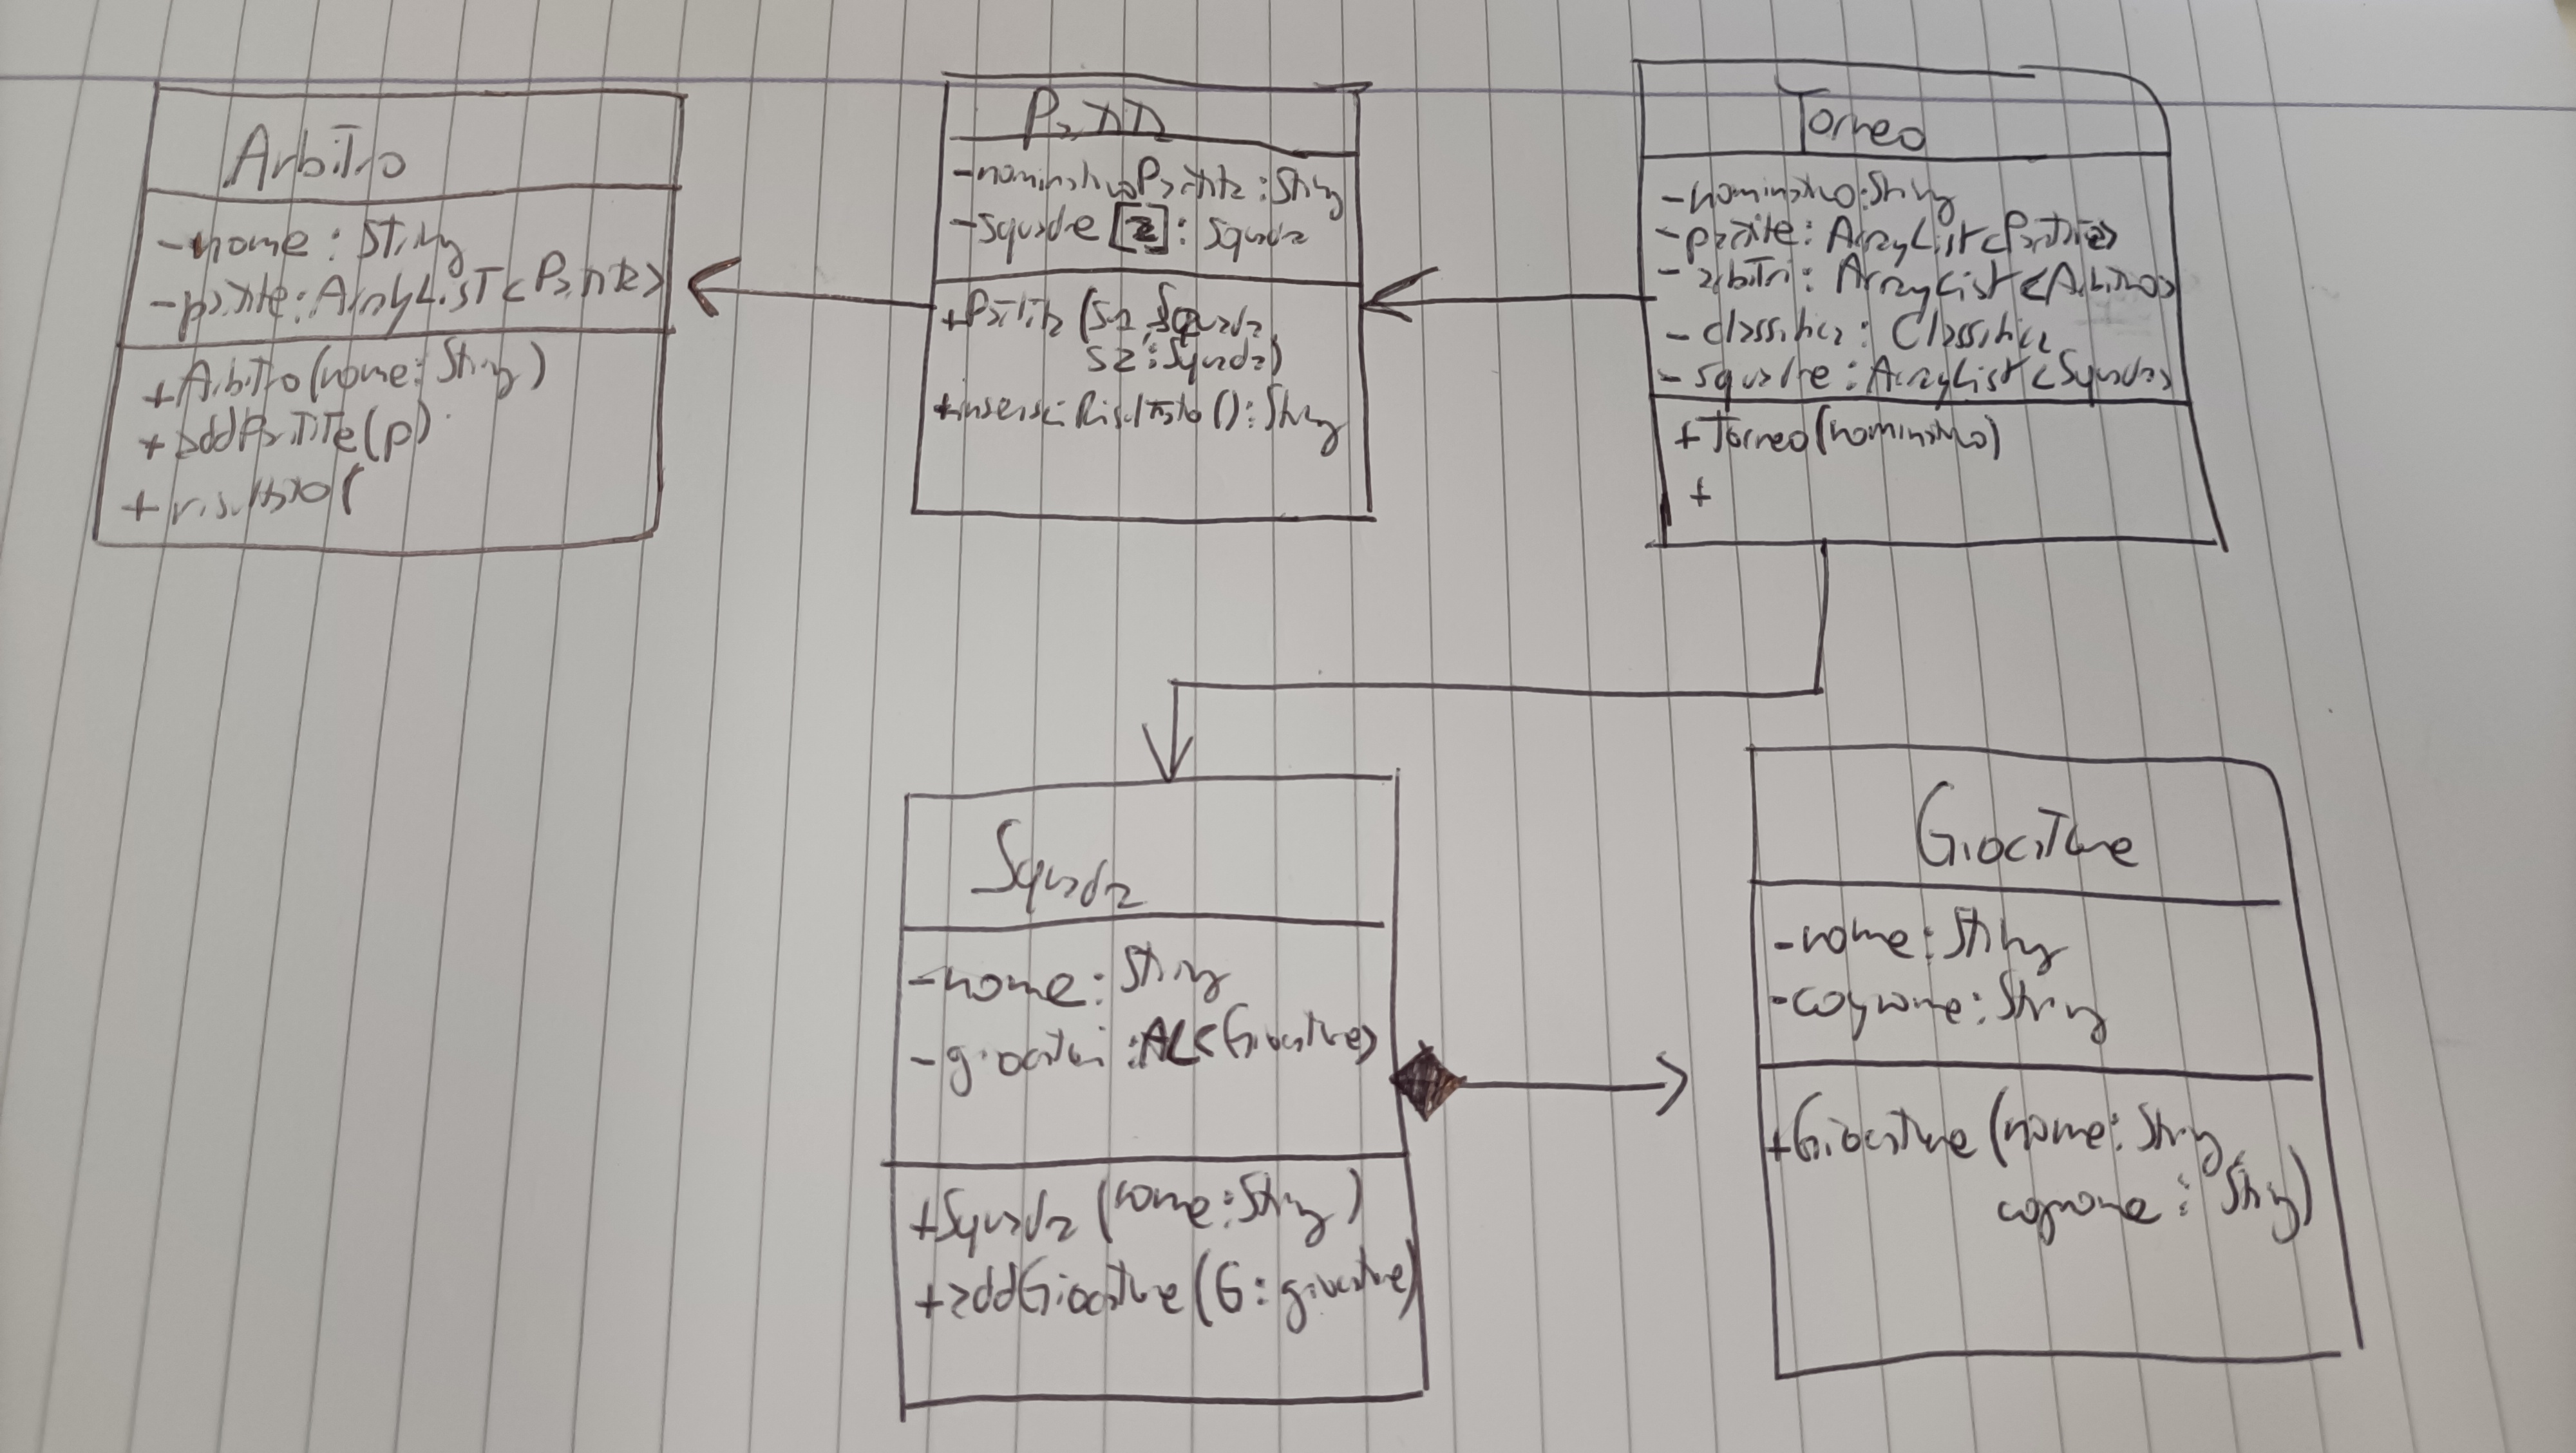 Arbitro
-nome: String
-partite: ArrayList<Partite>
+Arbitro(nome: String)
+addPartite(p)
+risultato(
Partita
-nominativoPartita: String
-squadre [2]: Squadra
+Partita (S1: Squadra
S2: Squadra)
+inserisciRisultato(): String
Torneo
-nominativo: String
-partite: ArrayList<Partite>
- arbitri: ArrayList<Arbitro>
- classifica: Classifica
- squadre: ArrayList<Squadra>
+Torneo(nominativo)
+
Squadra
-nome: String
-giocatori: AL<Giocatore>
+Squadra (nome: String)
+addGiocatore (G: giocatore)
Giocatore
-nome: String
-cognome: String
+Giocatore (nome: String,
cognome: String)